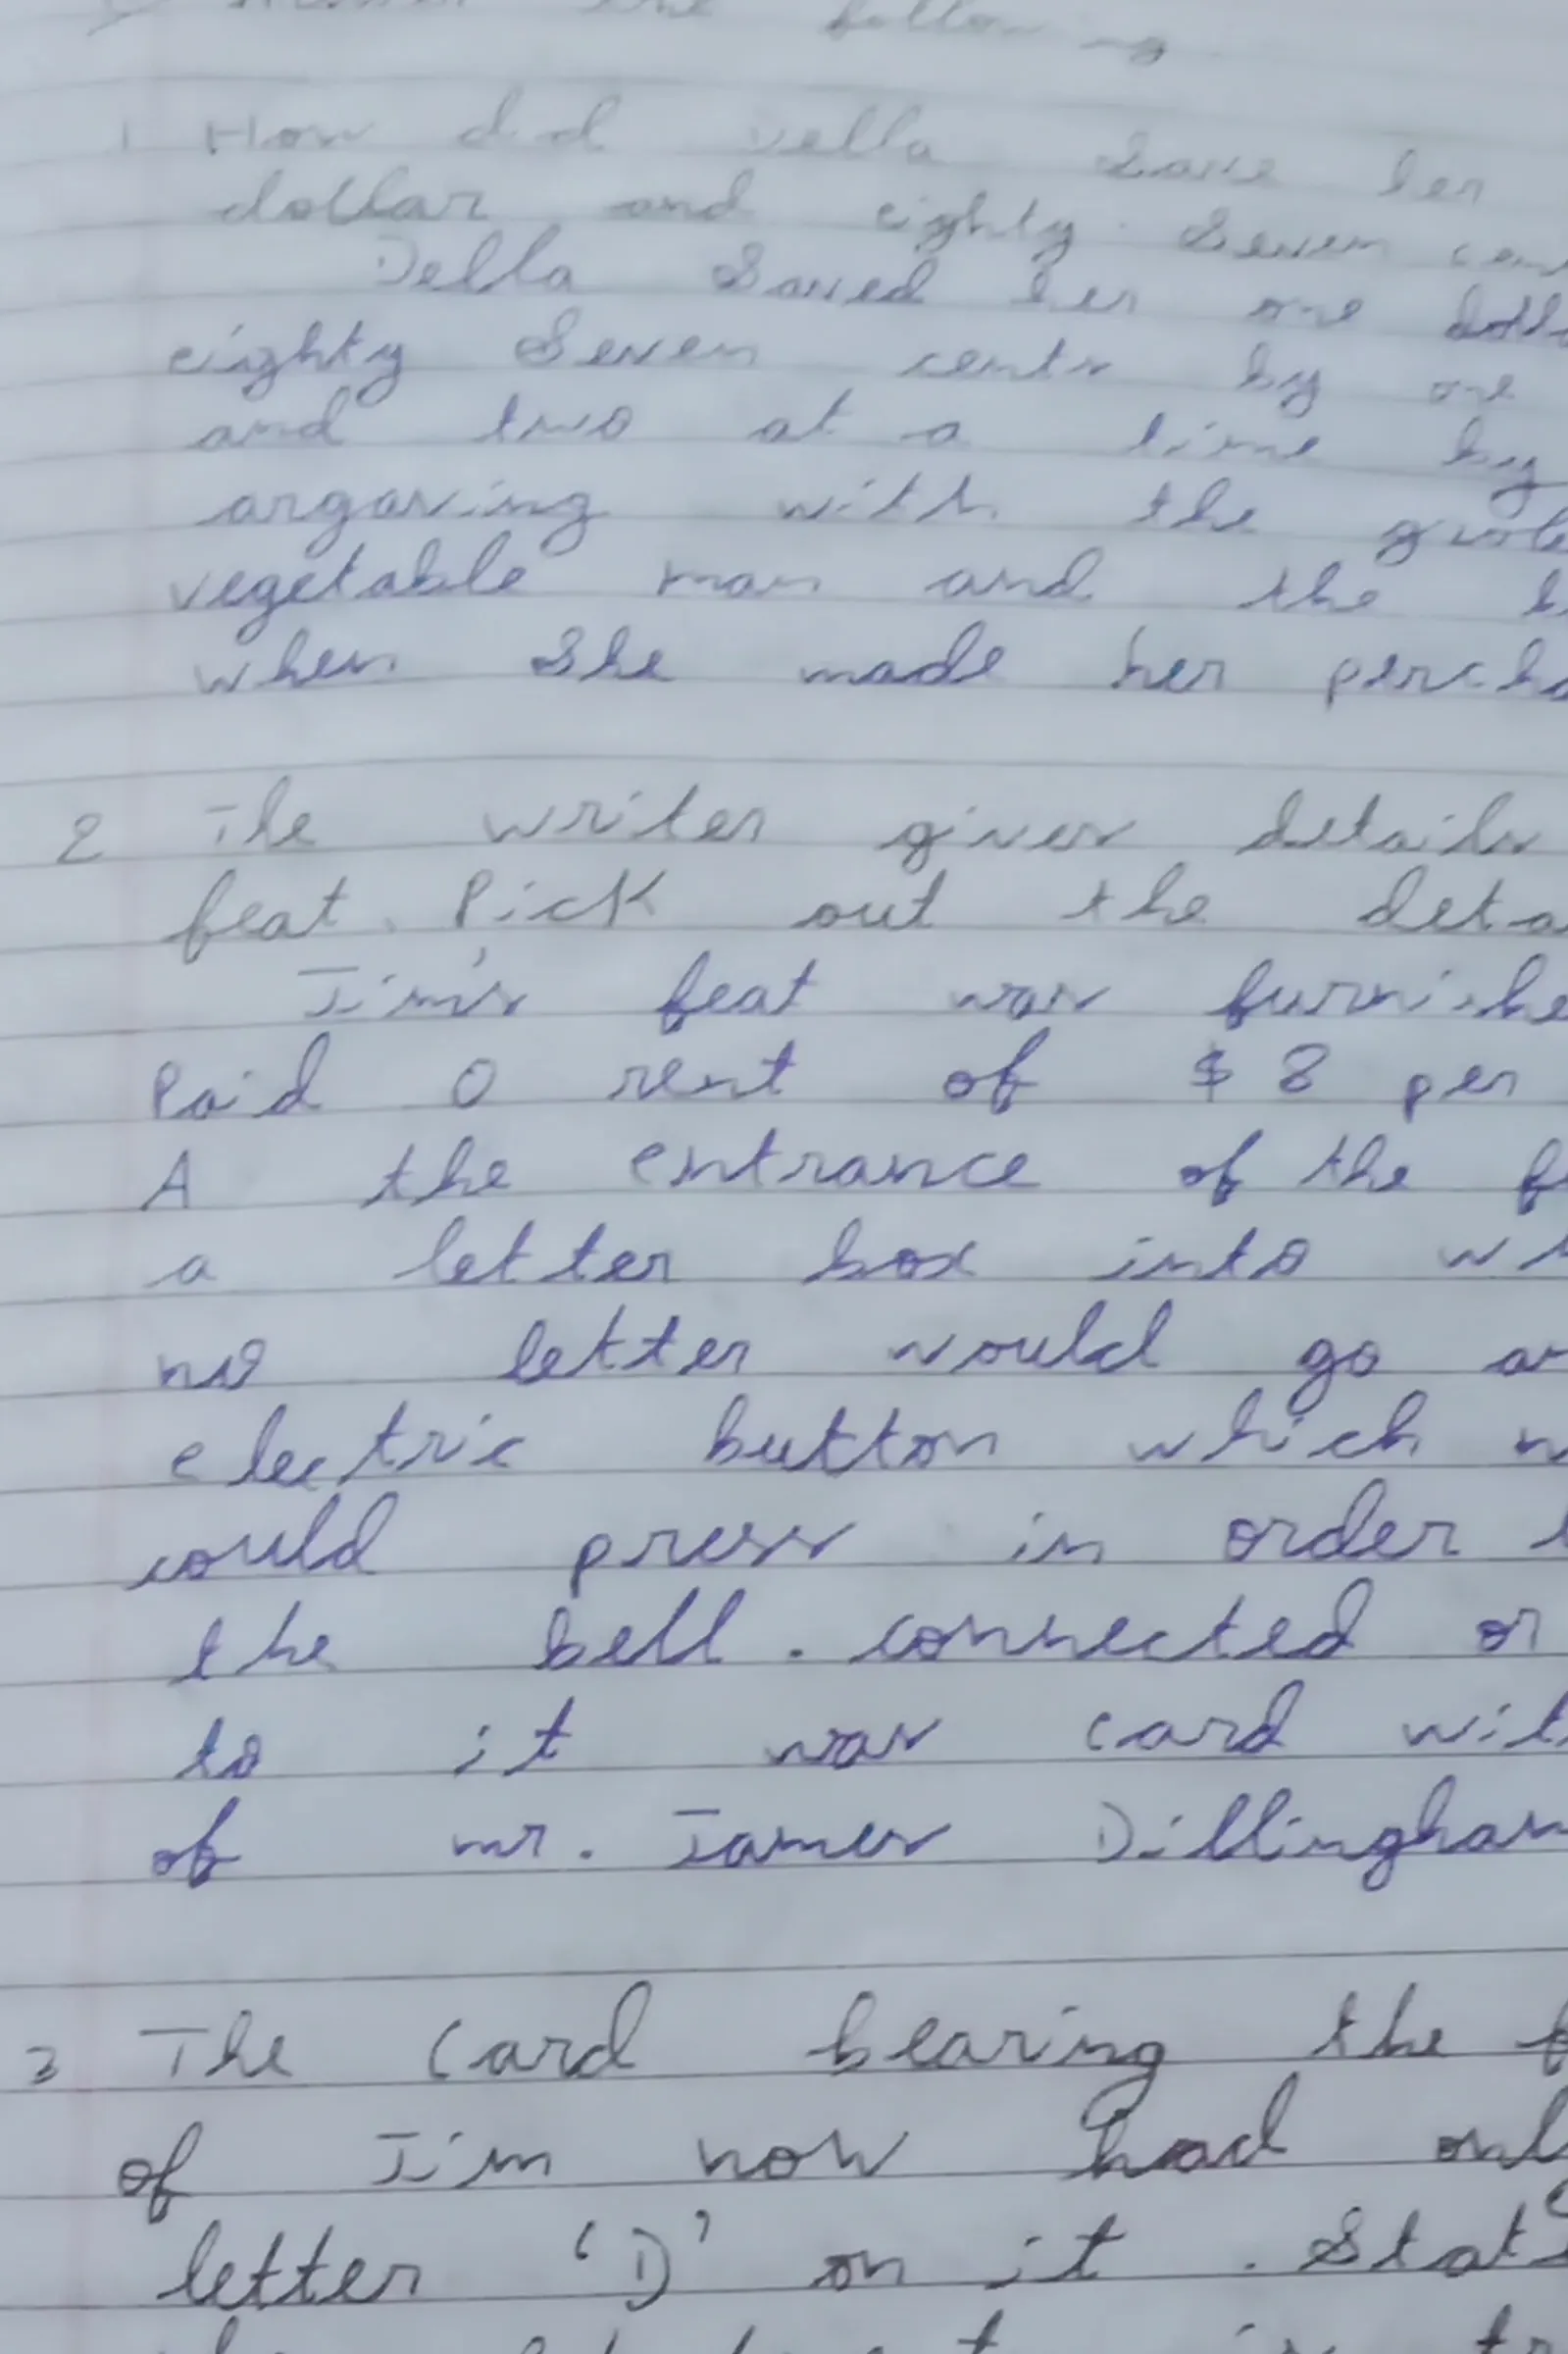 the following
1 How did Della save her
dollar and eighty seven cen
Della saved her one doll
eighty seven cents by one
and two at a time by
argaving with the
vegetable man and the b
when she made her percha
2 The writer gives details
feat. Pick out the deta
Jim's feat was furnishe
Paid 0 rent of $ 8 per
A the entrance of the f
a letter box into wh
no letter would go an
electric button which n
could press in order t
the bell. connected or
to it was card wit
of mr. James Dillingham
3 The card bearing the f
of Jim now had onl
letter 'D' on it. State